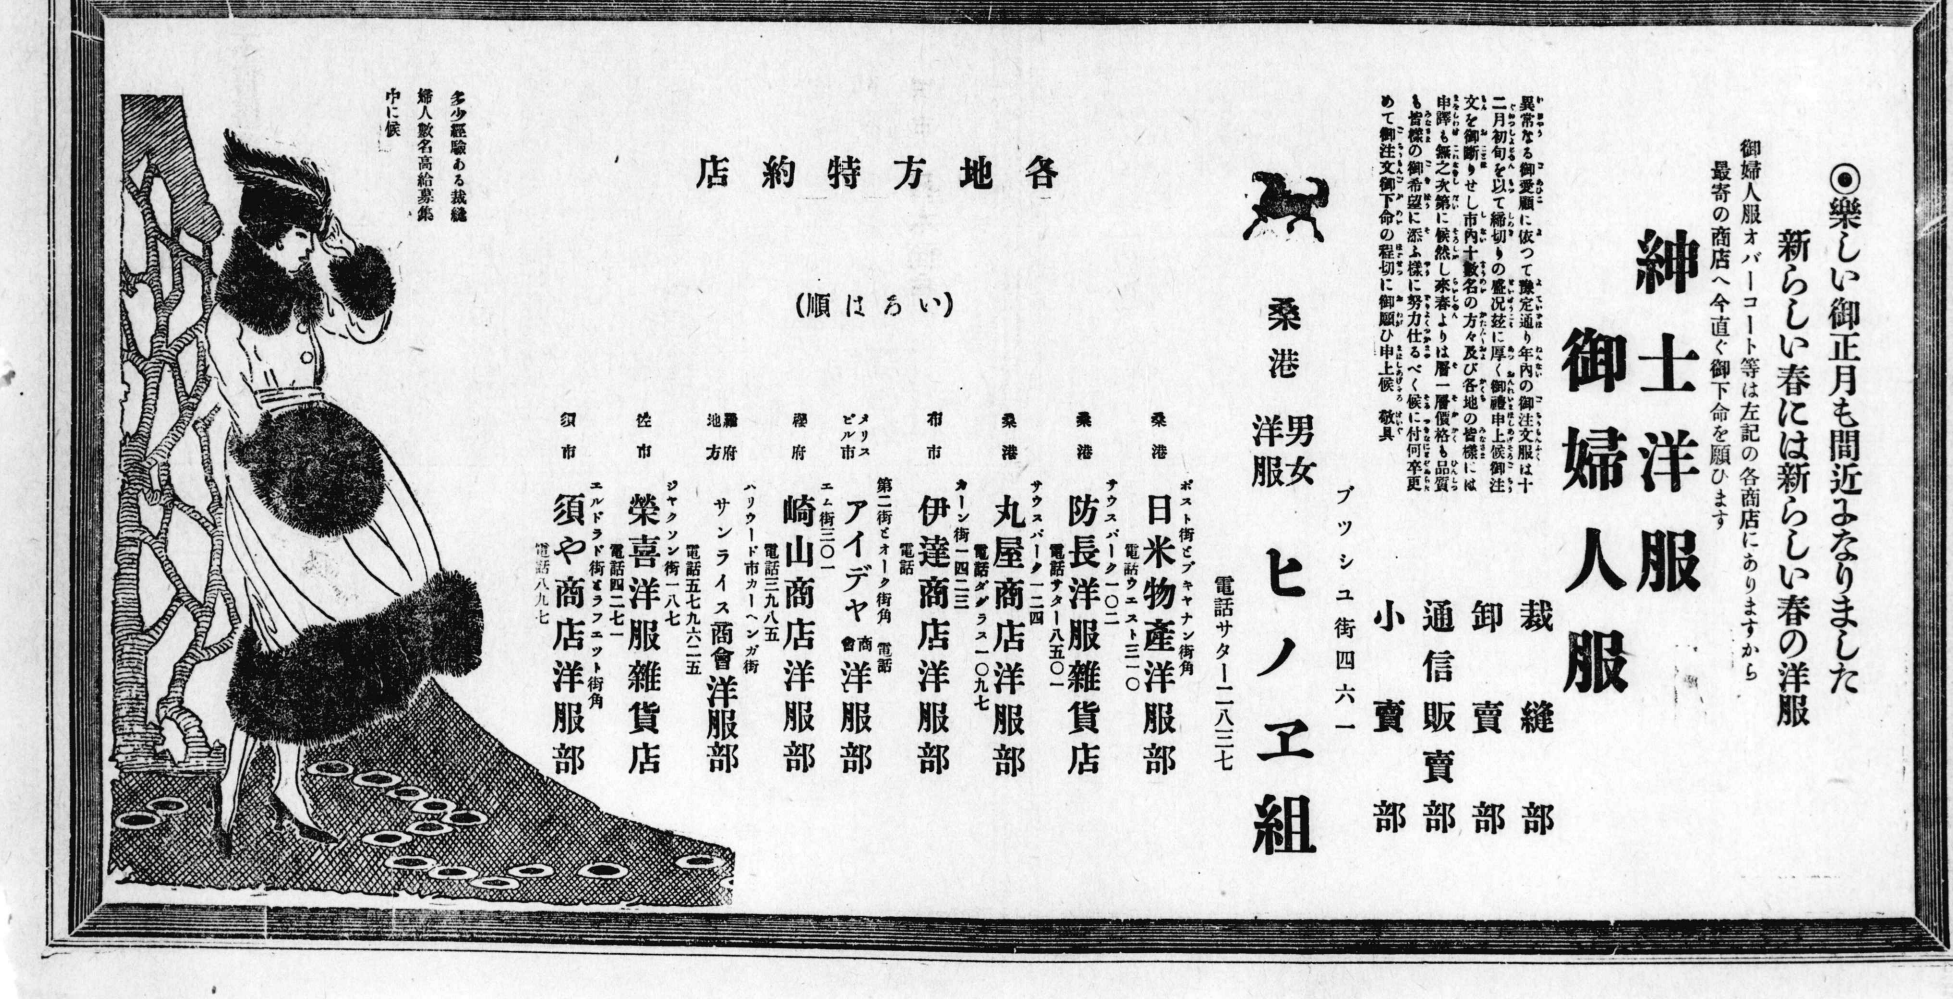 ◉樂しい御正月も間近よなりました
新らしい春には新らしい春の洋服
御婦人服オバーコート等は左記の各商店にありますから
最寄の商店へ今直ぐ御下命を願ひます
紳士洋服
御婦人服
異常なる御愛顧に依つて豫定通り年內の御注文服は十
二月初旬を以て締切りの盛况玆に厚く御禮申上候御注
文を御斷りせし市內十數名の方々及び各地の皆樣には
申譯も無之次第に候然し來春よりは層一層價格も品質
も皆樣の御希望に添ふ樣に努力仕るべく候に付何卒更
めて御注文御下命の程切に御願ひ申上候 敬具
裁縫部
卸賣部
通信販賣部
小賣部
ブツシユ街四六一
桑港 男女洋服 ヒノヱ組
電話サター二八三七
各地方特約店
(いろは順)
桑港 ポスト街とブキヤナン街角
日米物產洋服部
電話ウエスト三一〇
桑港 サウスパーク一〇二
防長洋服雜貨店
電話サター八五〇一
桑港 サウスパーク一二四
丸屋商店洋服部
電話ダグラス一〇九七
布市 カーン街一四二三
伊達商店洋服部
電話
メリスビル市 第二街とオーク街角 電話
アイデヤ商會洋服部
櫻府 エム街三〇一
崎山商店洋服部
電話三九八五
羅府地方 ハリウード市カーヘンガ街
サンライス商會洋服部
電話五七九六二五
佐市 ジヤクソン街一八七
榮喜洋服雜貨店
電話四二七一
須市 エルドラド街とラフエット街角
須や商店洋服部
電話八九七
多少經驗ある裁縫
婦人數名高給募集
中に候